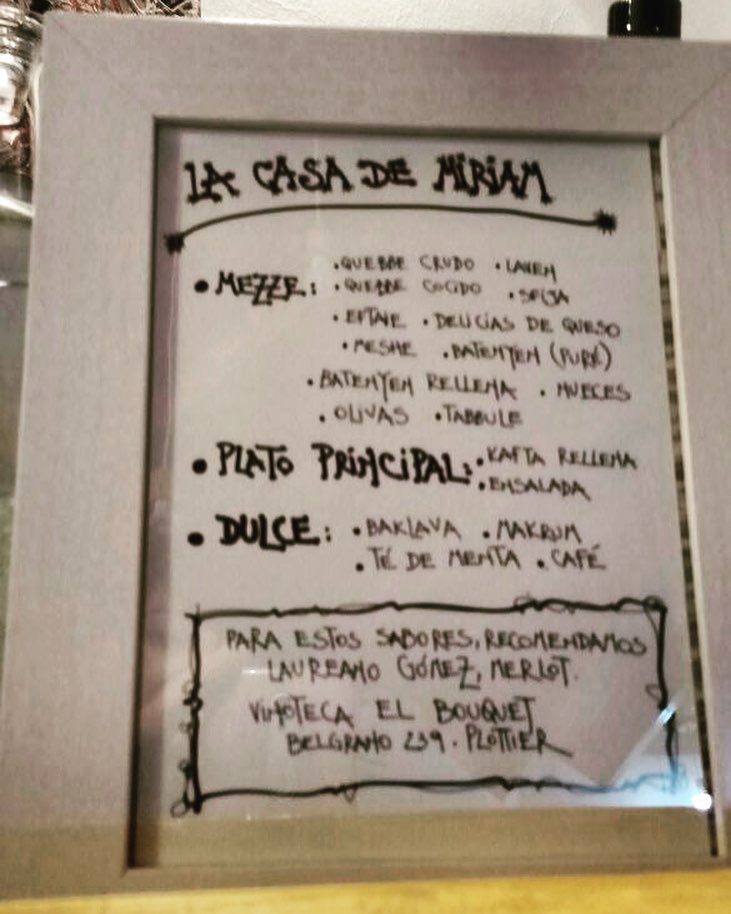 LA CASA DE MIRIAM
• QUEBBE CRUDO • LAVEN
• MEZZE: • QUEBBE COCIDO • SFIJA
• EFTAIE • DELICIAS DE QUESO
• MESHE • BATENYEN (PURÉ)
• BATENYEN RELLENA • NUECES
• OLIVAS • TABBULE
• PLATO PRINCIPAL: • KAFTA RELLENA
• ENSALADA
• DULCE: • BAKLAVA • MAKRUM
• TÉ DE MENTA • CAFÉ
PARA ESTOS SABORES, RECOMENDAMOS
LAUREANO GÓMEZ, MERLOT.
VINOTECA EL BOUQUET
BELGRANO 239 • PLOTTIER